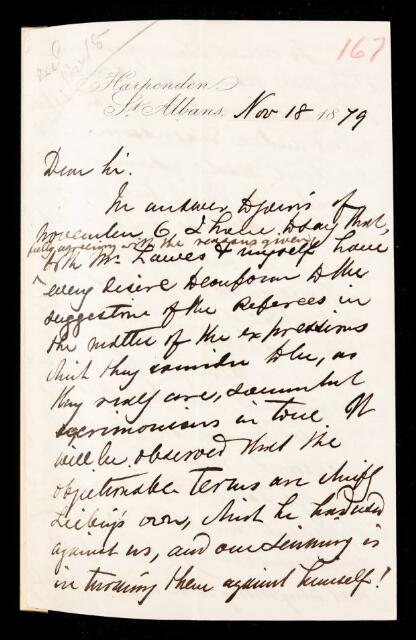 167
Harpenden.
St Albans, Nov 18 1879
Dear Sir.
In answer to yours of
November 6, I have to say that,
fully agreeing with the reasons given,
both Mr. Lawes & myself have
every desire to conform to the
suggestions of the Referees in
the matter of the expressions
which they consider to be, as
they really are, somewhat
acrimonious in tone. It
will be observed that the
objectionable terms are chiefly
Liebig's own, which he had used
against us, and our sinning is
in turning them against himself!